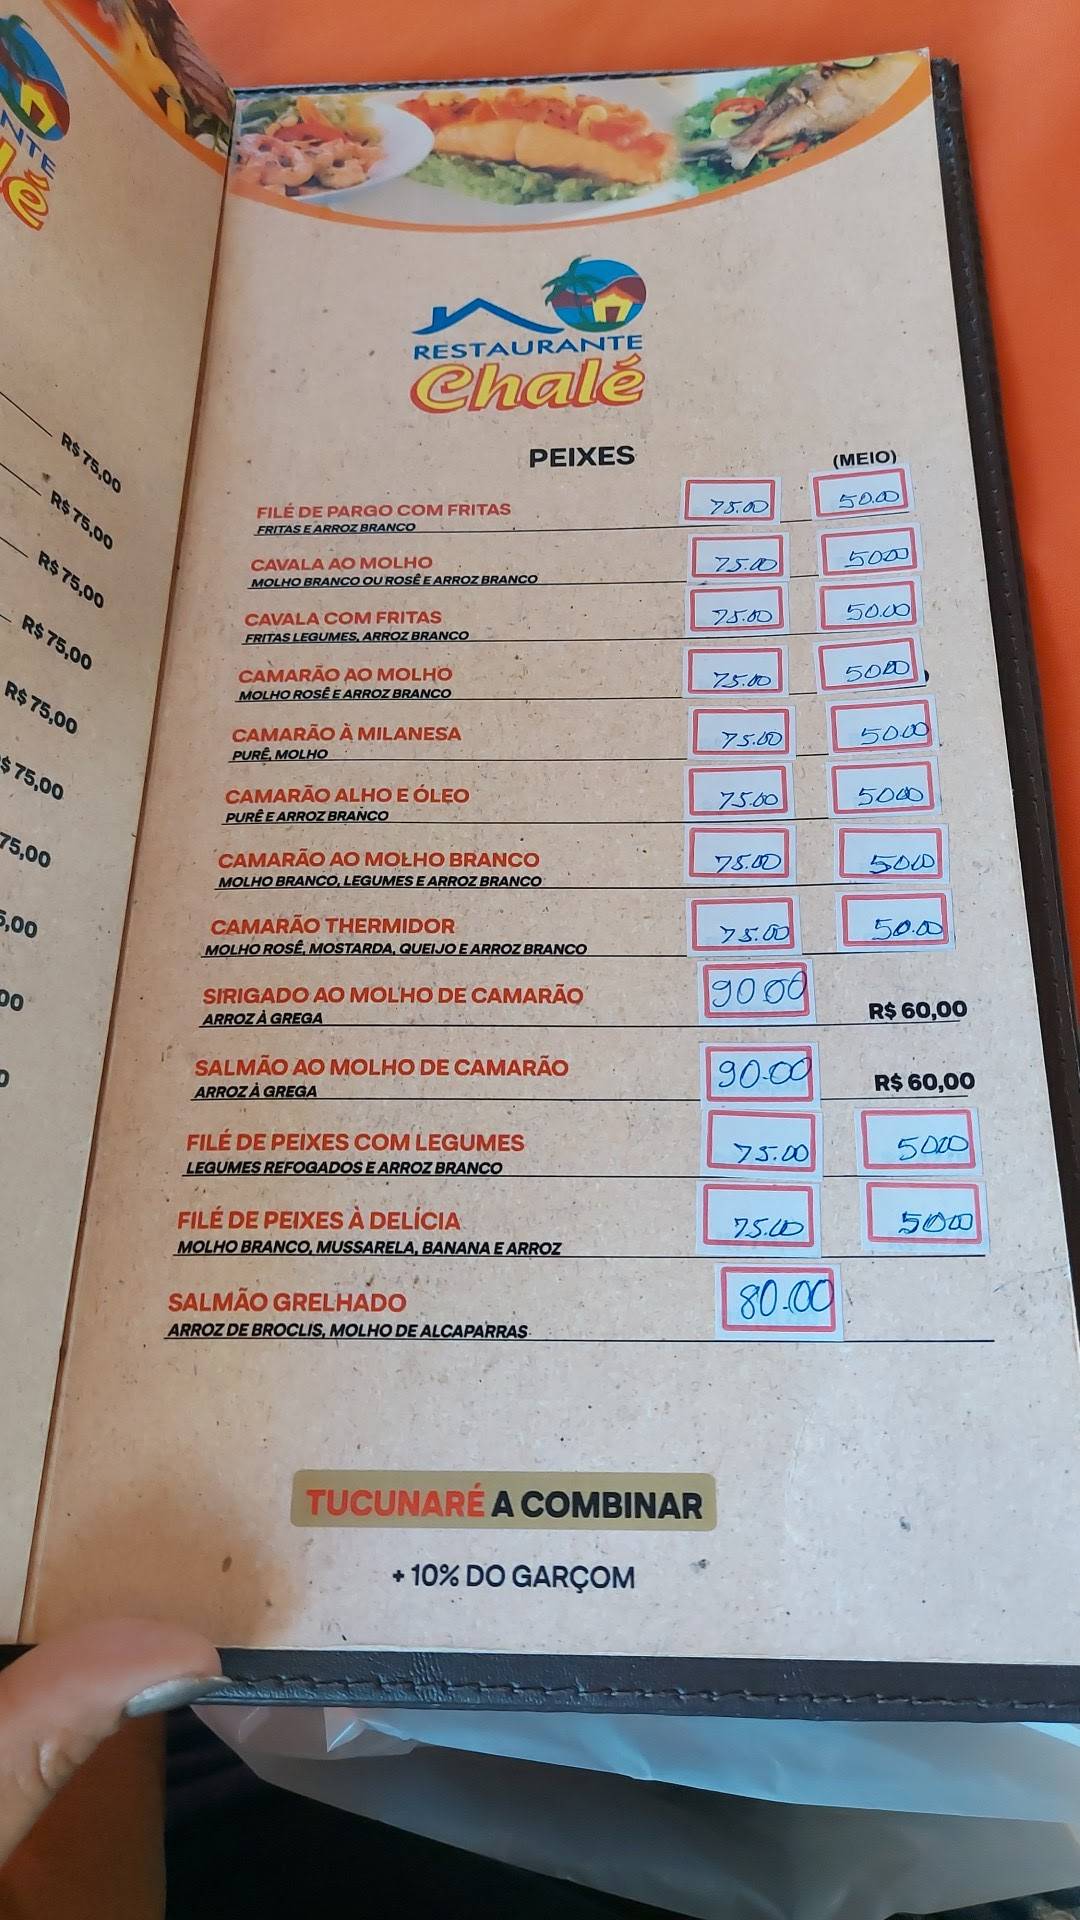 NTE
lé
R$ 75,00
R$ 75,00
R$ 75,00
R$ 75,00
R$ 75,00
$ 75,00
75,00
5,00
00
0
RESTAURANTE
Chalé
PEIXES (MEIO)
FILÉ DE PARGO COM FRITAS 75.00 50.00
FRITAS E ARROZ BRANCO
CAVALA AO MOLHO 75.00 50.00
MOLHO BRANCO OU ROSÊ E ARROZ BRANCO
CAVALA COM FRITAS 75.00 50.00
FRITAS LEGUMES, ARROZ BRANCO
CAMARÃO AO MOLHO 75.00 50.00
MOLHO ROSÊ E ARROZ BRANCO
CAMARÃO À MILANESA 75.00 50.00
PURÊ, MOLHO
CAMARÃO ALHO E ÓLEO 75.00 50.00
PURÊ E ARROZ BRANCO
CAMARÃO AO MOLHO BRANCO 75.00 50.00
MOLHO BRANCO, LEGUMES E ARROZ BRANCO
CAMARÃO THERMIDOR 75.00 50.00
MOLHO ROSÊ, MOSTARDA, QUEIJO E ARROZ BRANCO
SIRIGADO AO MOLHO DE CAMARÃO 90.00 R$ 60,00
ARROZ À GREGA
SALMÃO AO MOLHO DE CAMARÃO 90.00 R$ 60,00
ARROZ À GREGA
FILÉ DE PEIXES COM LEGUMES 75.00 50.00
LEGUMES REFOGADOS E ARROZ BRANCO
FILÉ DE PEIXES À DELÍCIA 75.00 50.00
MOLHO BRANCO, MUSSARELA, BANANA E ARROZ
SALMÃO GRELHADO 80.00
ARROZ DE BROCLIS, MOLHO DE ALCAPARRAS
TUCUNARÉ A COMBINAR
+ 10% DO GARÇOM